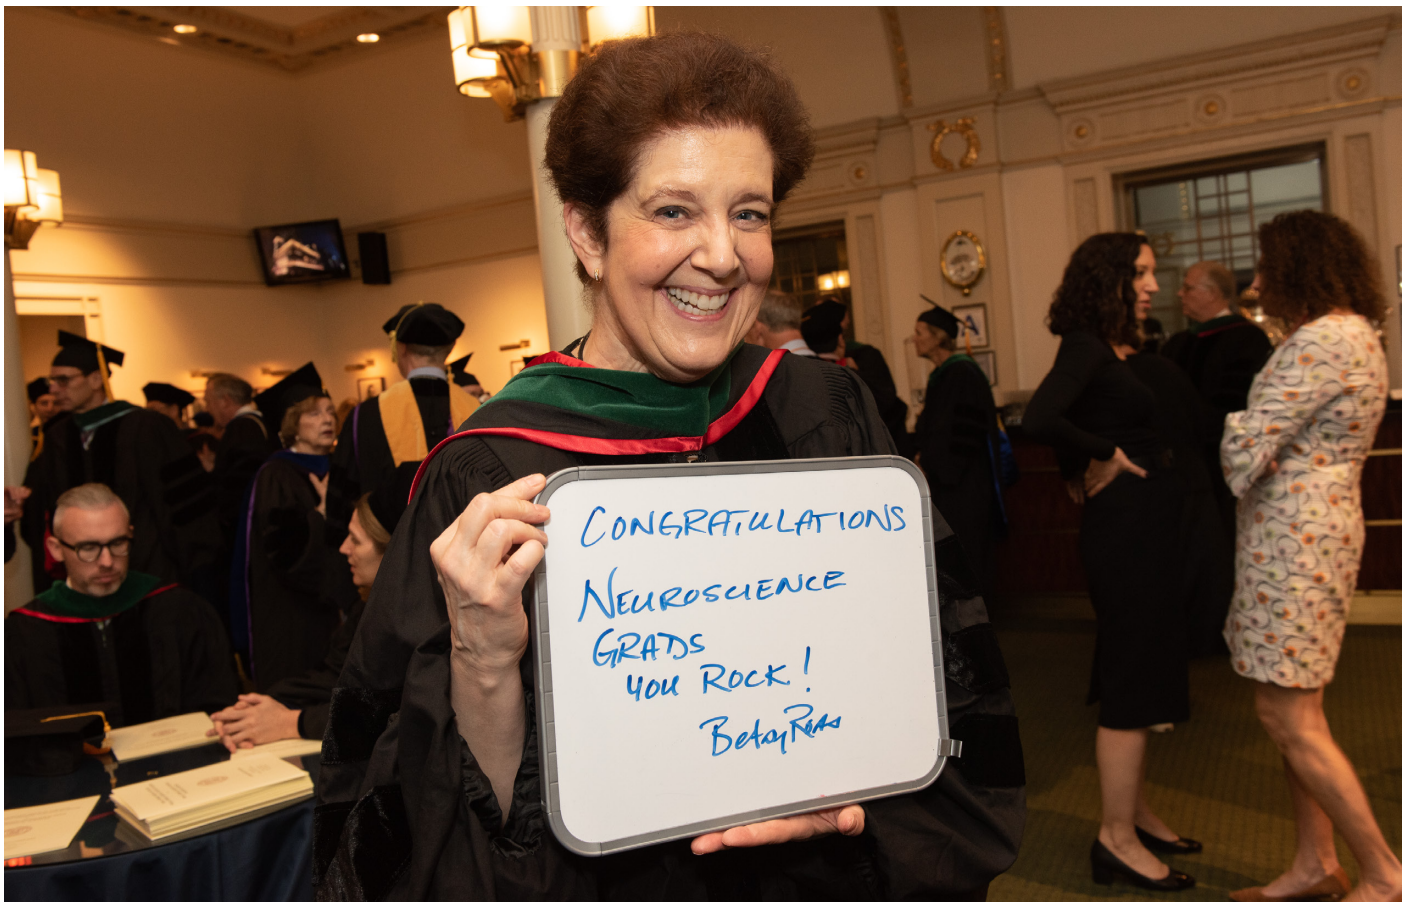 CONGRATULATIONS
NEUROSCIENCE
GRADS
YOU ROCK!
Betsy Ross